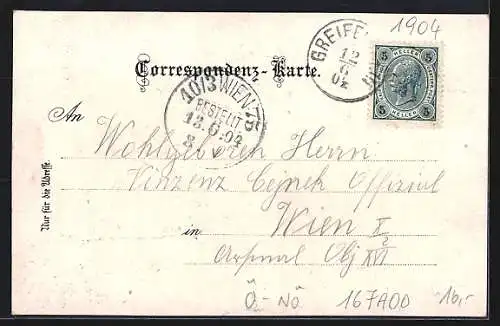 1904
GREIFE
12
6
04
5 HELLER 5
5 HELLER 5
Correspondenz-Karte.
10/3 WIEN 75
BESTELLT
13.6.04
8 V
An
Wohlgeboren Herrn
Vinzenz Cejnek Offizial
Wien X/2
in
Arsenal Obj XVI
Nur für die Adresse.
Ö-NÖ 167A00 10,-